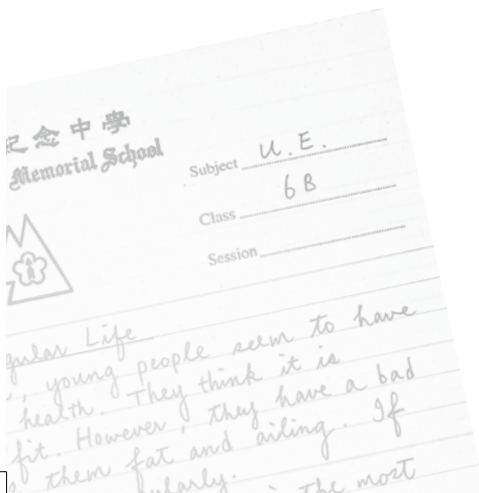 念中學
Memorial School
Subject U.E.
Class 6B
Session
gular Life
, young people seem to have
health. They think it is
fit. However, they have a bad
them fat and ailing. If
ularly.
the most